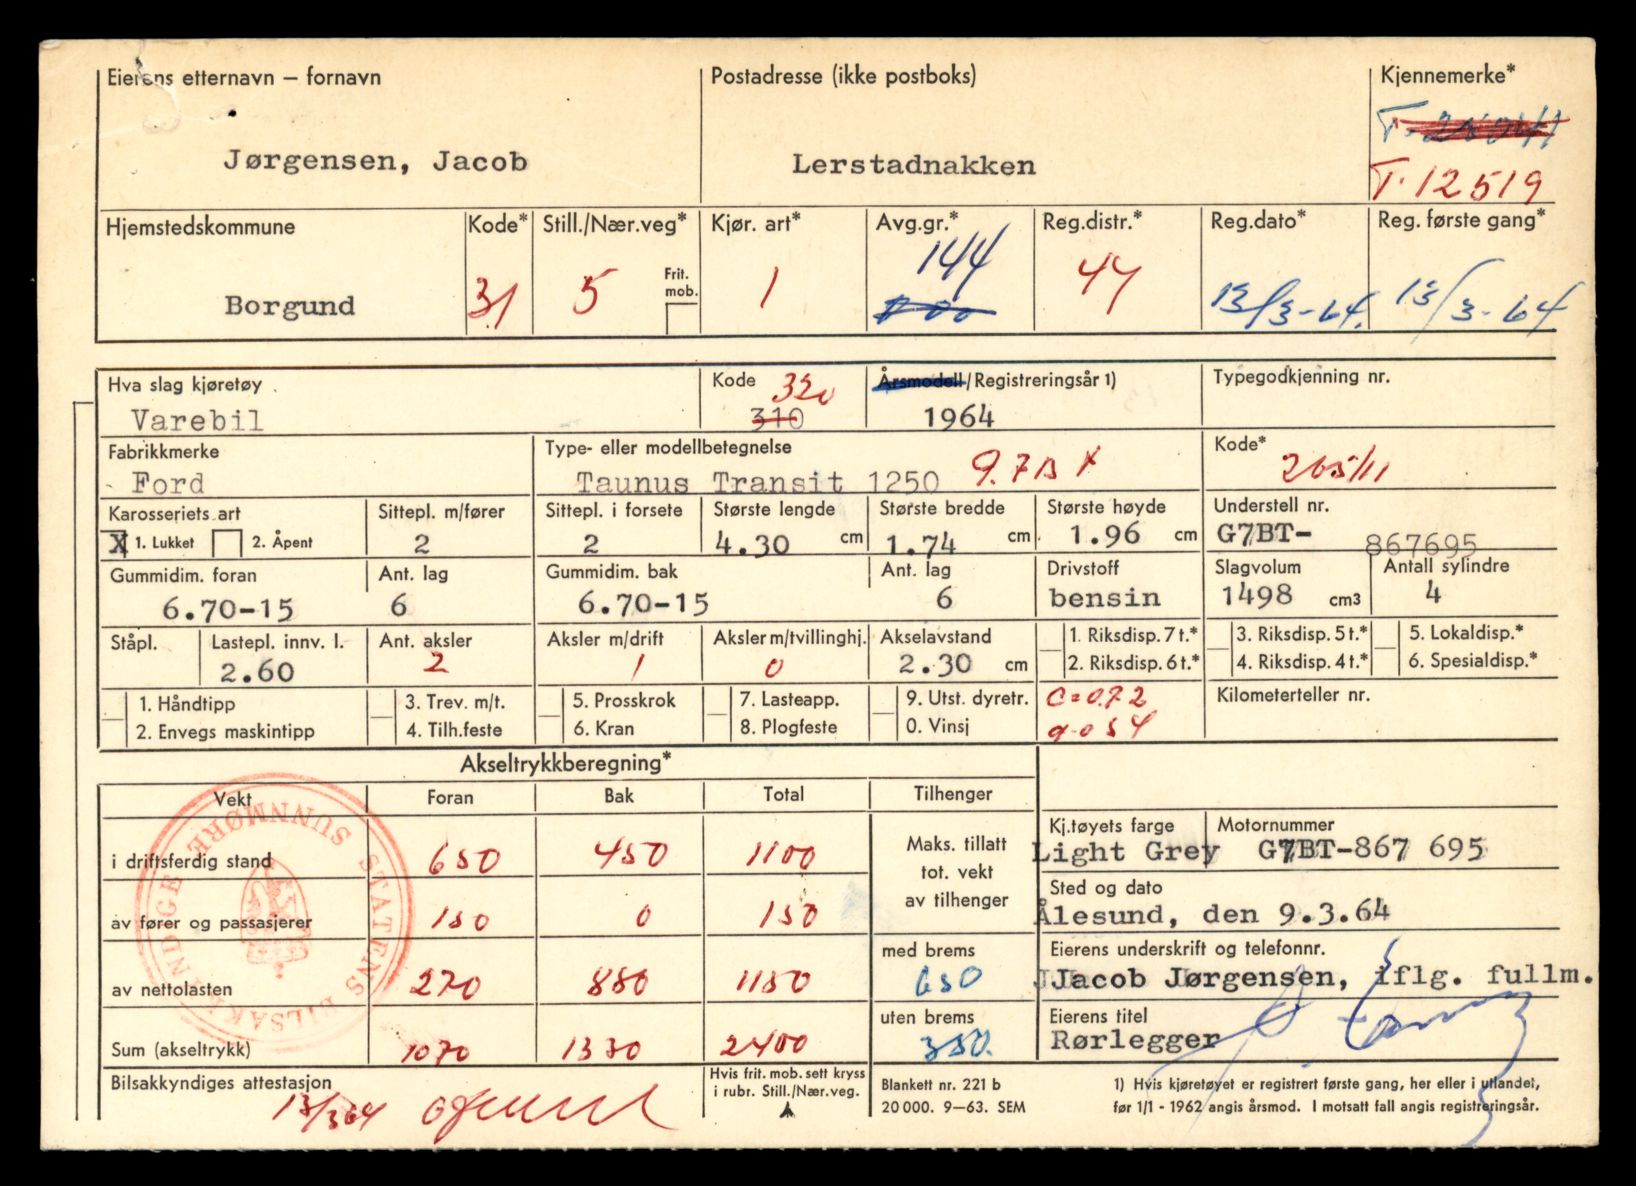 Eierens etternavn – fornavn
Jørgensen, Jacob
Postadresse (ikke postboks)
Lerstadnakken
Kjennemerke*
T.12519
Hjemstedskommune
Borgund
Kode*
31
Still./Nær.veg*
5
Frit. mob.
Kjør. art*
1
Avg.gr.*
144
Reg.distr.*
47
Reg.dato*
13/3-64.
Reg. første gang*
13/3-64
Hva slag kjøretøy
Varebil
Kode
320
310
Årsmodell/Registreringsår 1)
1964
Typegodkjenning nr.
Fabrikkmerke
Ford
Type- eller modellbetegnelse
Taunus Transit 1250
Kode*
205/11
Karosseriets art
X 1. Lukket 2. Åpent
Sittepl. m/fører
2
Sittepl. i forsete
2
Største lengde
4.30 cm
Største bredde
1.74 cm
Største høyde
1.96 cm
Understell nr.
G7BT- 867695
Gummidim. foran
6.70-15
Ant. lag
6
Gummidim. bak
6.70-15
Ant. lag
6
Drivstoff
bensin
Slagvolum
1498 cm3
Antall sylindre
4
Ståpl.
Lastepl. innv. l.
2.60
Ant. aksler
2
Aksler m/drift
1
Aksler m/tvillinghj.
0
Akselavstand
2.30 cm
1. Riksdisp. 7 t.*
2. Riksdisp. 6 t.*
3. Riksdisp. 5 t.*
4. Riksdisp. 4 t.*
5. Lokaldisp.*
6. Spesialdisp.*
1. Håndtipp
2. Envegs maskintipp
3. Trev. m/t.
4. Tilh.feste
5. Prosskrok
6. Kran
7. Lasteapp.
8. Plogfeste
9. Utst. dyretr.
0. Vinsj
C=0.72
Kilometerteller nr.
Akseltrykkberegning*
Vekt Foran Bak Total Tilhenger
i driftsferdig stand 650 450 1100
Maks. tillatt
tot. vekt
av tilhenger
av fører og passasjerer 150 0 150
med brems
av nettolasten 270 880 1150 650
uten brems
Sum (akseltrykk) 1070 1330 2400 350.
Kj.tøyets farge
Light Grey
Motornummer
G7BT-867 695
Sted og dato
Ålesund, den 9.3.64
Eierens underskrift og telefonnr.
Jacob Jørgensen, iflg. fullm.
Eierens titel
Rørlegger
Bilsakkyndiges attestasjon
13/3 64
Hvis frit. mob. sett kryss
i rubr. Still./Nær.veg.
Blankett nr. 221 b
20 000. 9–63. SEM
1) Hvis kjøretøyet er registrert første gang, her eller i utlandet,
før 1/1 - 1962 angis årsmod. I motsatt fall angis registreringsår.
STATENS BILSAKKYNDIGE SUNNMØRE